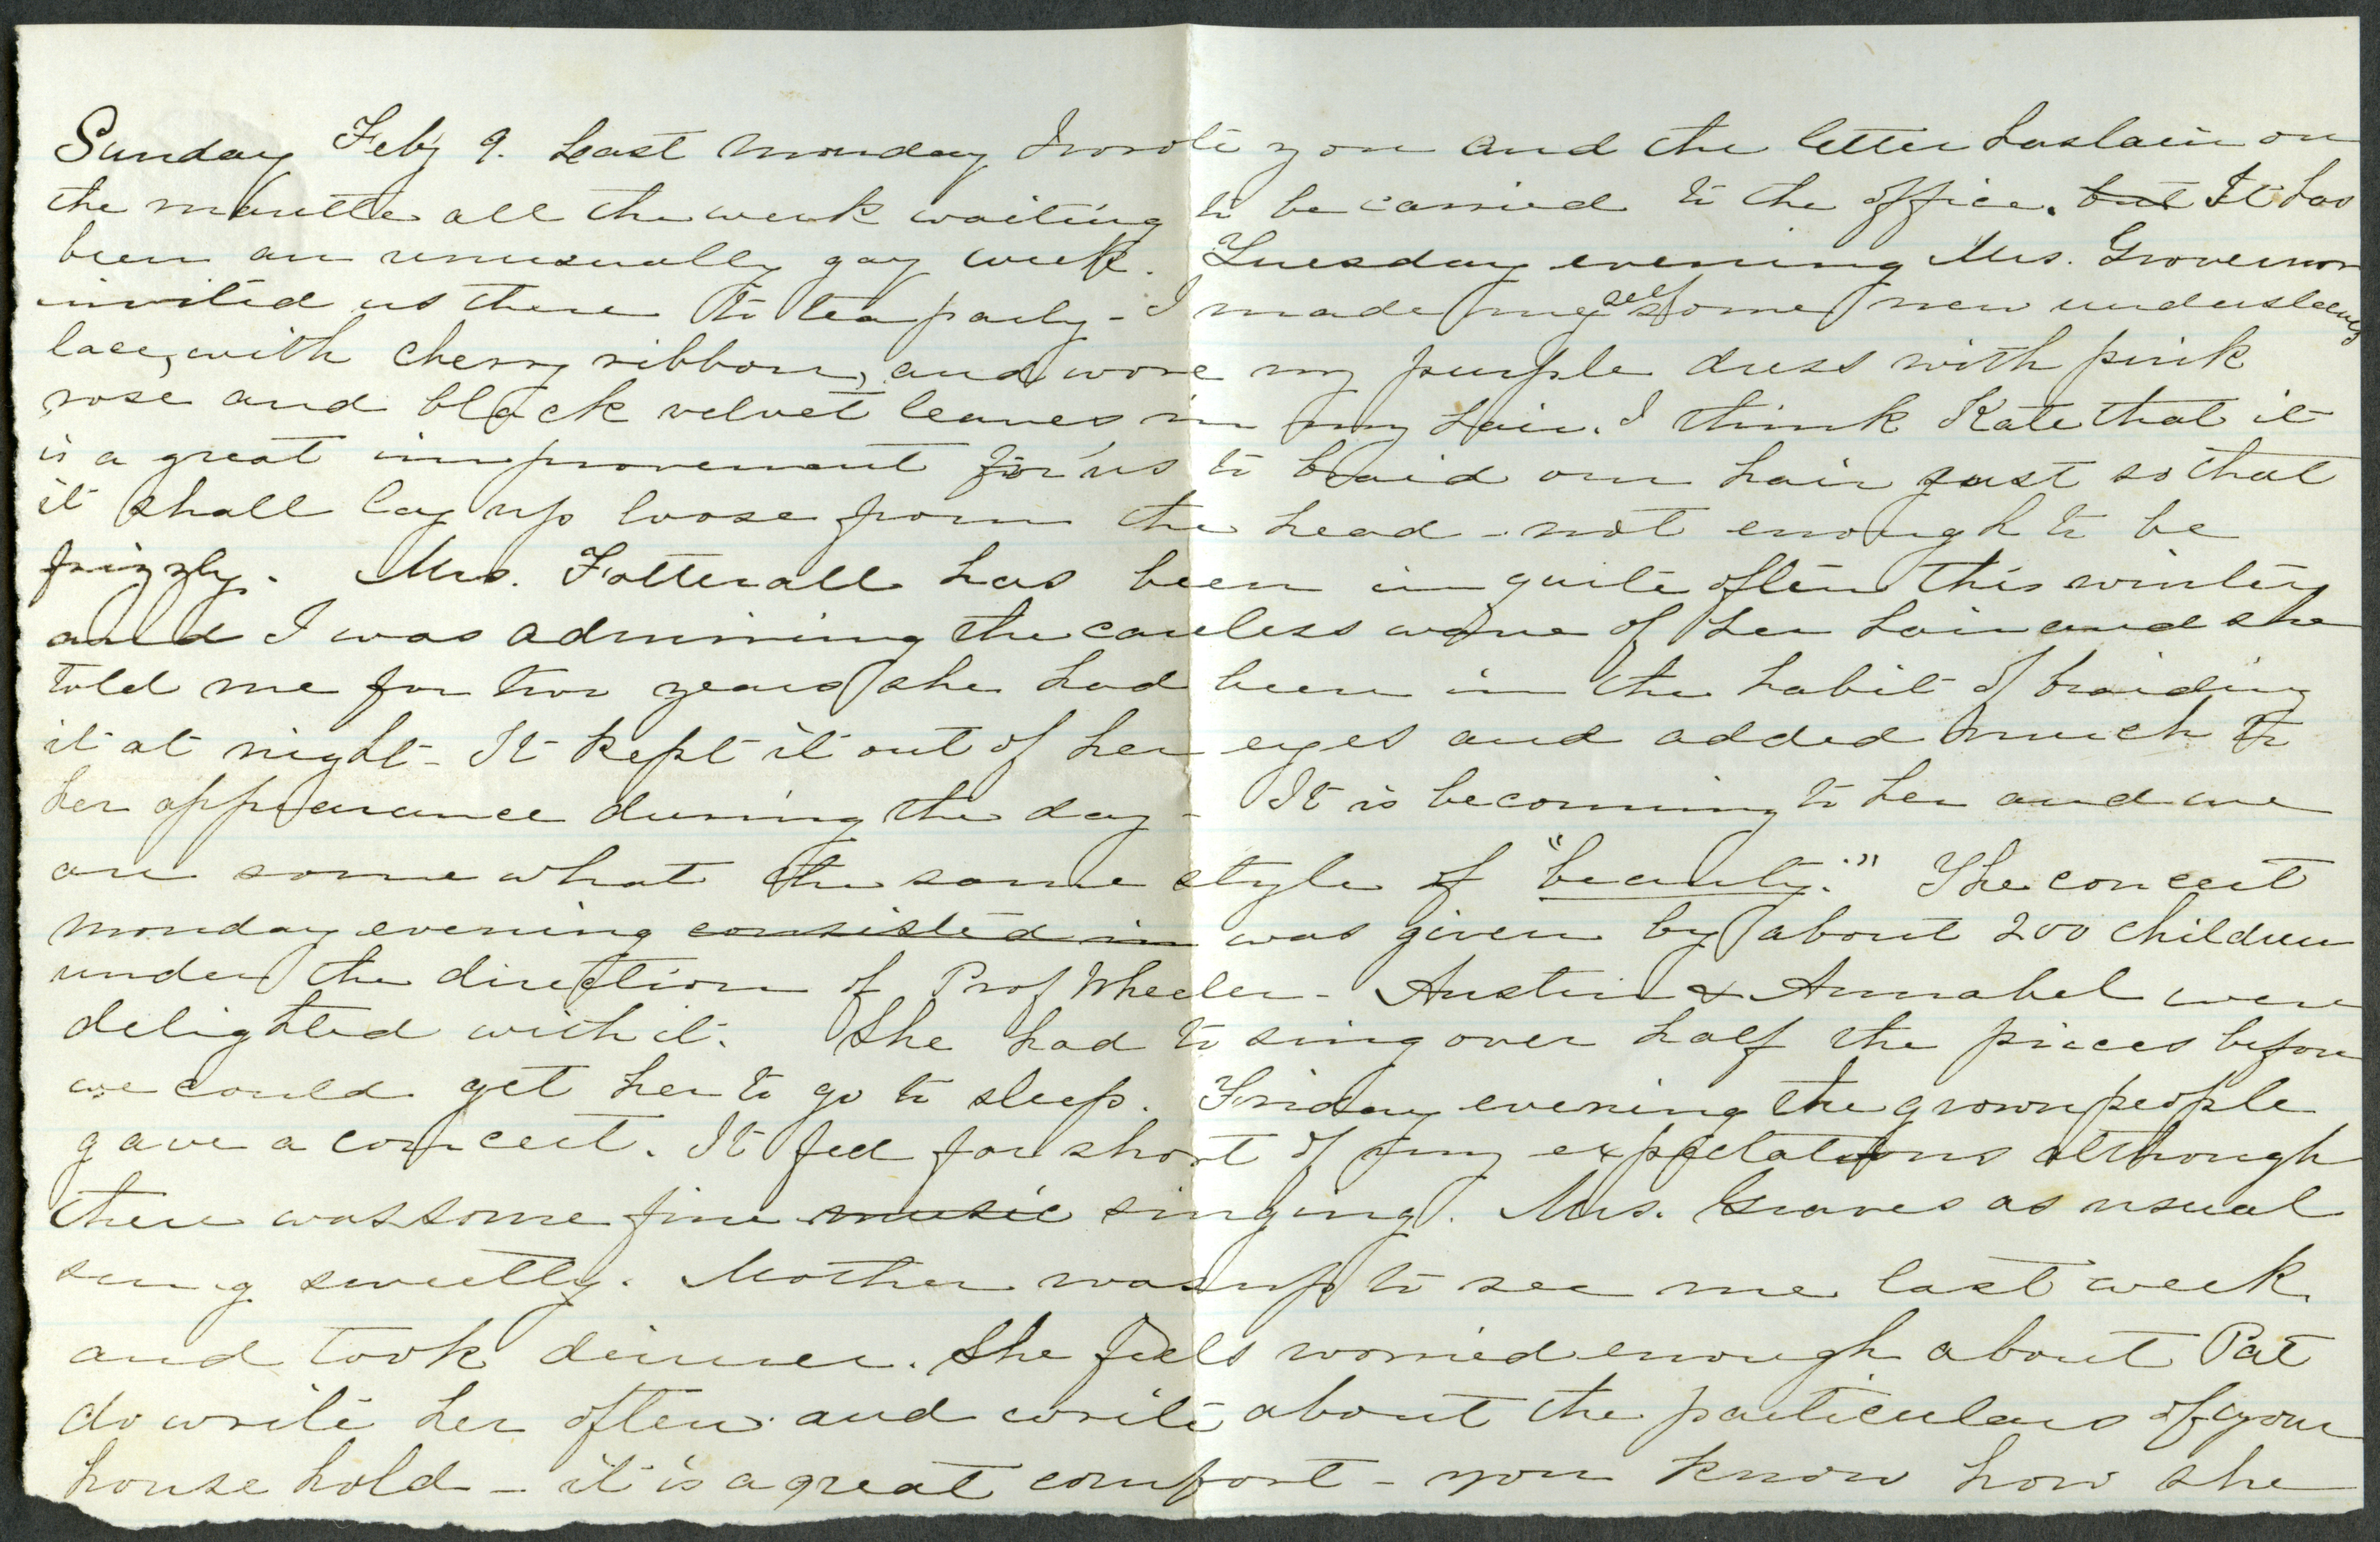 Sunday Feby 9. Last Monday I wrote you and the letter has lain on
the mantle all the week waiting to be carried to the office. but It has
been an unusually gay week. Tuesday evening Mrs. Grovenor
invited us there to tea party - I made myself some new undersleeves
lace, with cherry ribbon, and wore my purple dress with pink
rose and black velvet leaves in my hair. I think Kate that it
is a great improvement for us to braid our hair just so that
it shall lay up loose from the head - not enough to be
frizzly. Mrs. Fotterall has been in quite often this winter
and I was admiring the careless wave of her hair and she
told me for two years she had been in the habit of braiding
it at night - It kept it out of her eyes and added much to
her appearance during the day - It is becoming to her and we
are somewhat the same style of "beauty." The concert
Monday evening consisted in was given by about 200 children
under the direction of Prof Wheeler - Austin & Annabel were
delighted with it. She had to sing over half the pieces before
we could get her to go to sleep. Friday evening the grown people
gave a concert. It fell far short of my expectations although
there was some fine music singing. Mrs. Graves as usual
sung sweetly. Mother was up to see me last week
and took dinner. She feels worried enough about Pat
do write her often and write about the particulars of your
house hold - it is a great comfort - you know how she